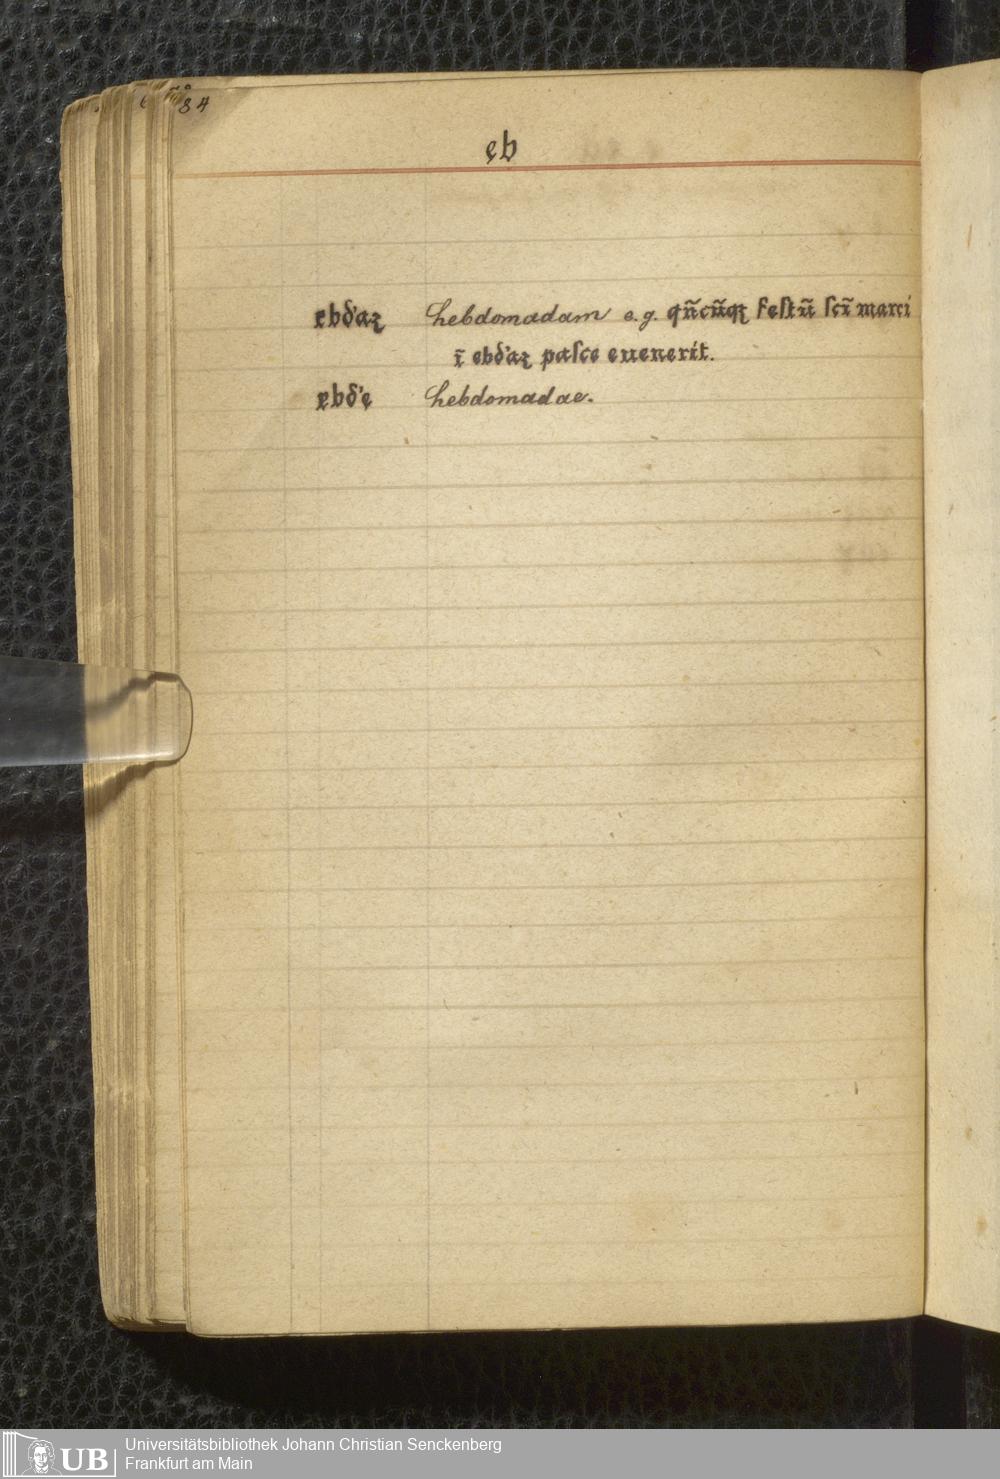 84
ęb
ebd'aꝫ hebdomadam e.g. qn̄cūqꝫ festū scī marci
ī ebd'aꝫ pasce euenerit.
ębd'ę hebdomadae.
UB
Universitätsbibliothek Johann Christian Senckenberg
Frankfurt am Main